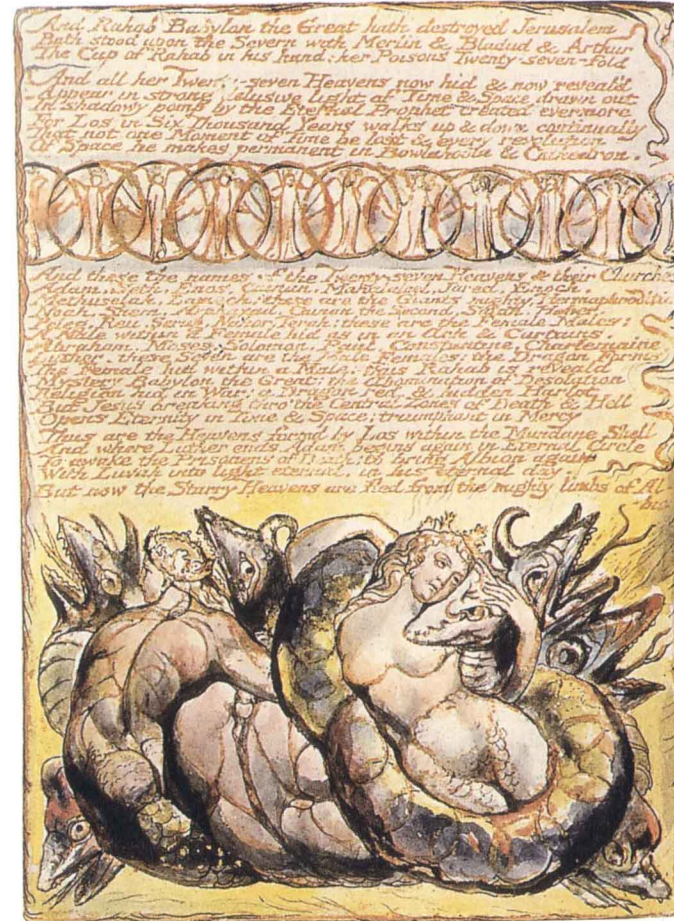 And Rahab Babylon the Great hath destroyed Jerusalem
Bath stood upon the Severn with Merlin & Bladud & Arthur
The Cup of Rahab in his hand: her Poisons Twenty-seven-fold
And all her Twenty-seven Heavens now hid & now reveal'd
Appear in strong delusive light of Time & Space drawn out
In shadowy pomp by the Eternal Prophet created evermore
For Los in Six Thousand Years walks up & down continually
That not one Moment of Time be lost & every revolution
Of Space he makes permanent in Bowlahoola & Cathedron.
And these the names of the Twenty-seven Heavens & their Churches
Adam, Seth, Enos, Cainan, Mahalaleel, Jared, Enoch,
Methuselah, Lamech; these are the Giants mighty, Hermaphroditic
Noah, Shem, Arphaxad, Cainan the Second, Salah, Heber,
Peleg, Reu, Serug, Nahor, Terah: these are the Female Males:
A Male within a Female hid as in an Ark & Curtains.
Abraham, Moses, Solomon, Paul, Constantine, Charlemaine,
Luther. these Seven are the Male Females: the Dragon Forms
The Female hid within a Male: thus Rahab is reveald
Mystery Babylon the Great: the Abomination of Desolation
Religion hid in War: a Dragon red, & hidden Harlot
But Jesus breaking thro' the Central Zones of Death & Hell
Opens Eternity in Time & Space; triumphant in Mercy
Thus are the Heavens formd by Los within the Mundane Shell
And where Luther ends Adam begins again in Eternal Circle
To awake the Prisoners of Death; to bring Albion again
With Luvah into light eternal, in his eternal day.
But now the Starry Heavens are fled from the mighty limbs of Al
-bion